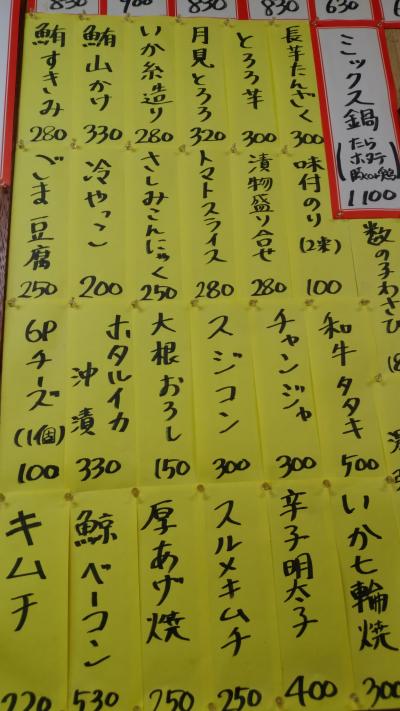 830
900
830
830
630
ミックス鍋
(たら
ホタテ
1100
長芋たんざく
300
とろろ芋
300
月見とろろ
320
いか糸造り
280
鮪山かけ
330
鮪すきみ
280
数の子わさび
味付のり
(2束)
100
漬物盛り合せ
280
トマトスライス
280
さしみこんにゃく
250
冷やっこ
200
ごま豆腐
250
和牛タタキ
500
チャンジャ
300
スジコン
300
大根おろし
150
ホタルイカ
沖漬
330
6Pチーズ
(1個)
100
いか七輪焼
300
辛子明太子
400
スルメキムチ
250
厚あげ焼
250
鯨ベーコン
530
キムチ
220